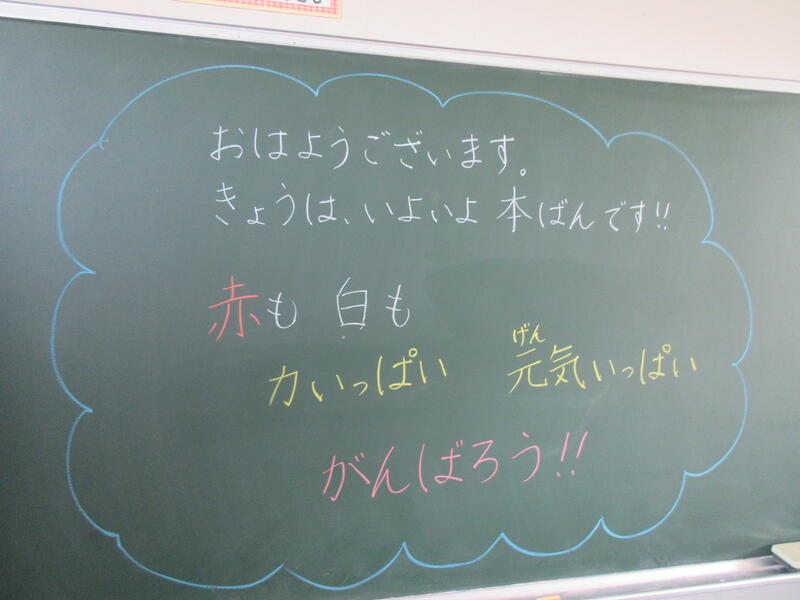 おはようございます。
きょうは、いよいよ 本ばんです!!
赤も 白も
力いっぱい 元気いっぱい
げん
がんばろう!!